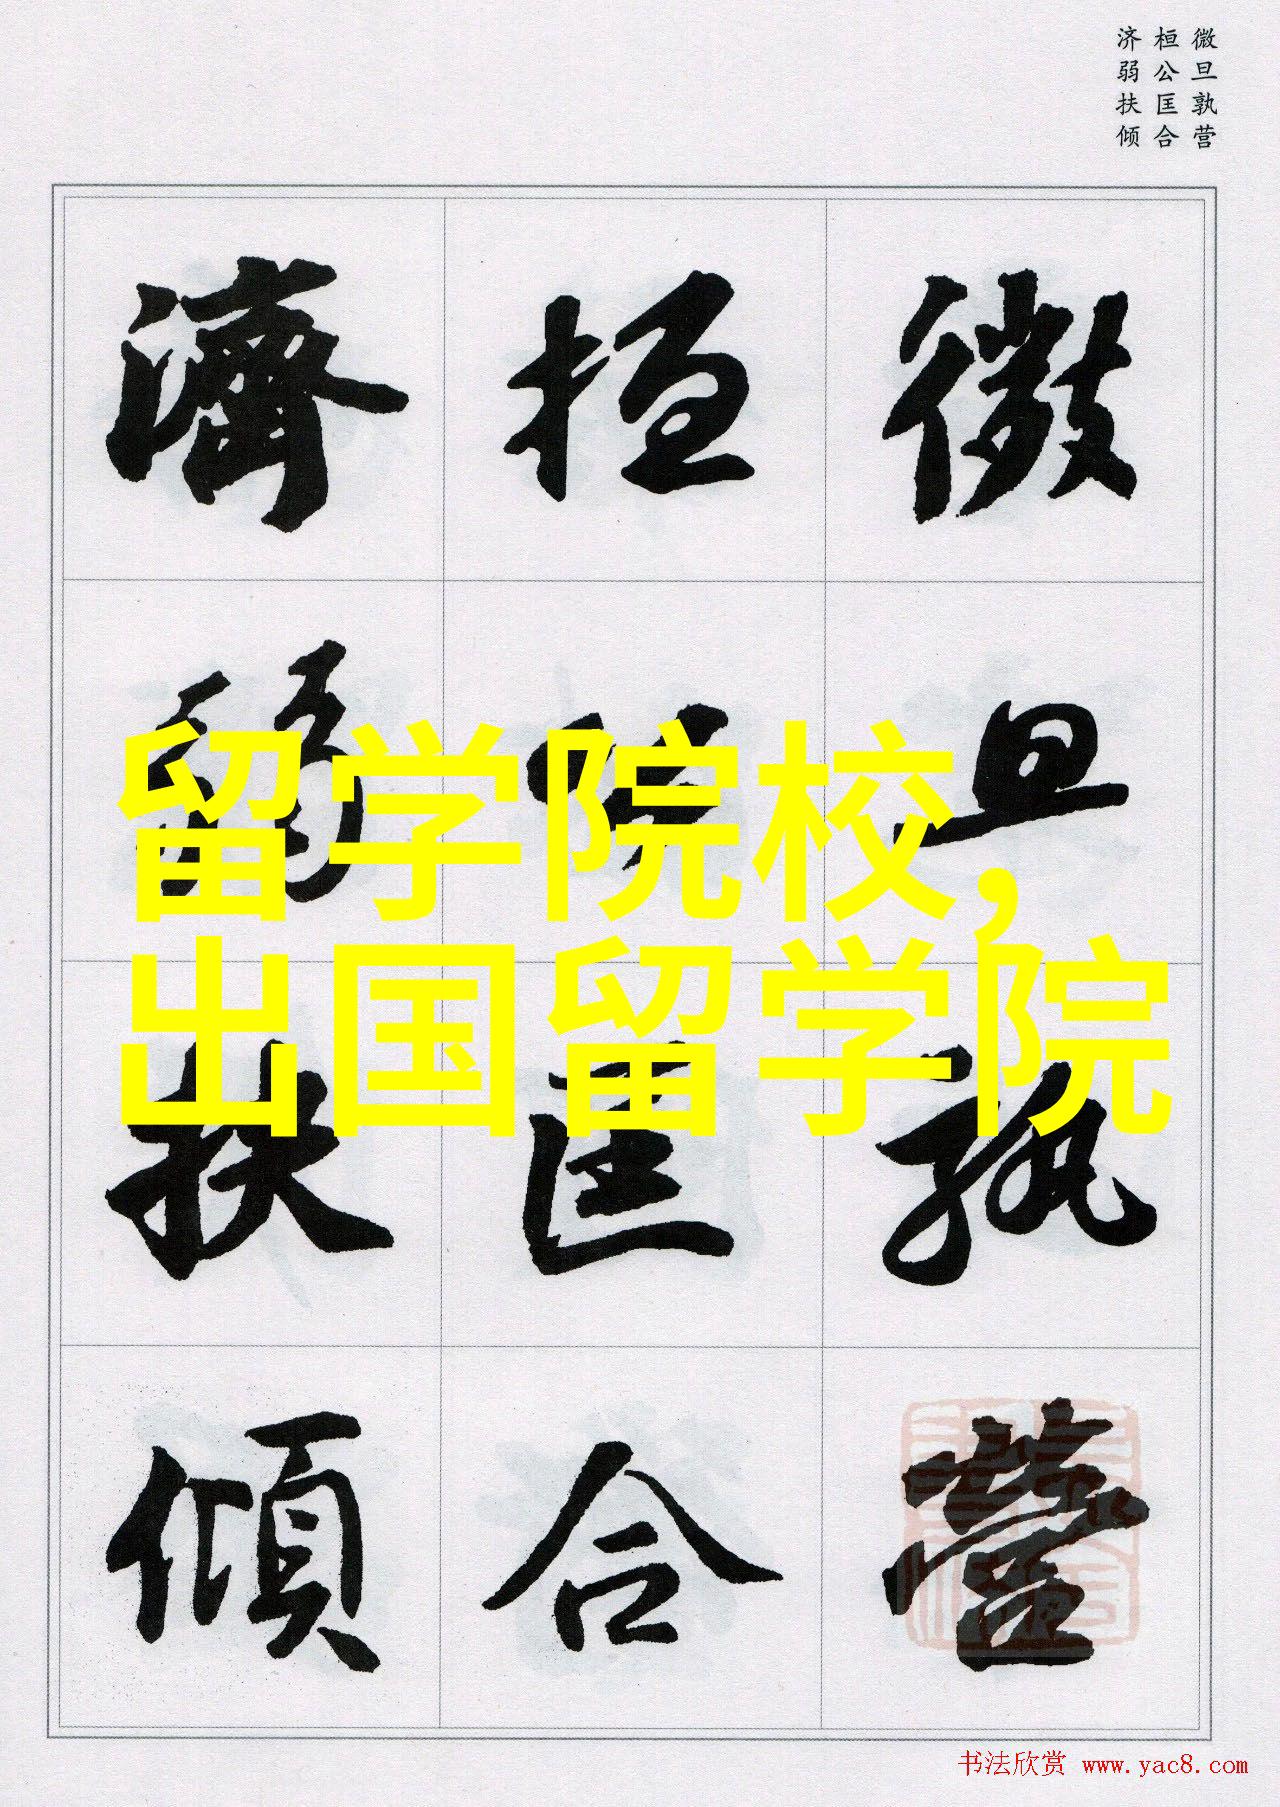 微旦孰营
桓公匡合
济弱扶倾
微旦孰營
桓公匡合
濟弱扶傾
留学院校，
出国留学院
书法欣赏 www.yac8.com